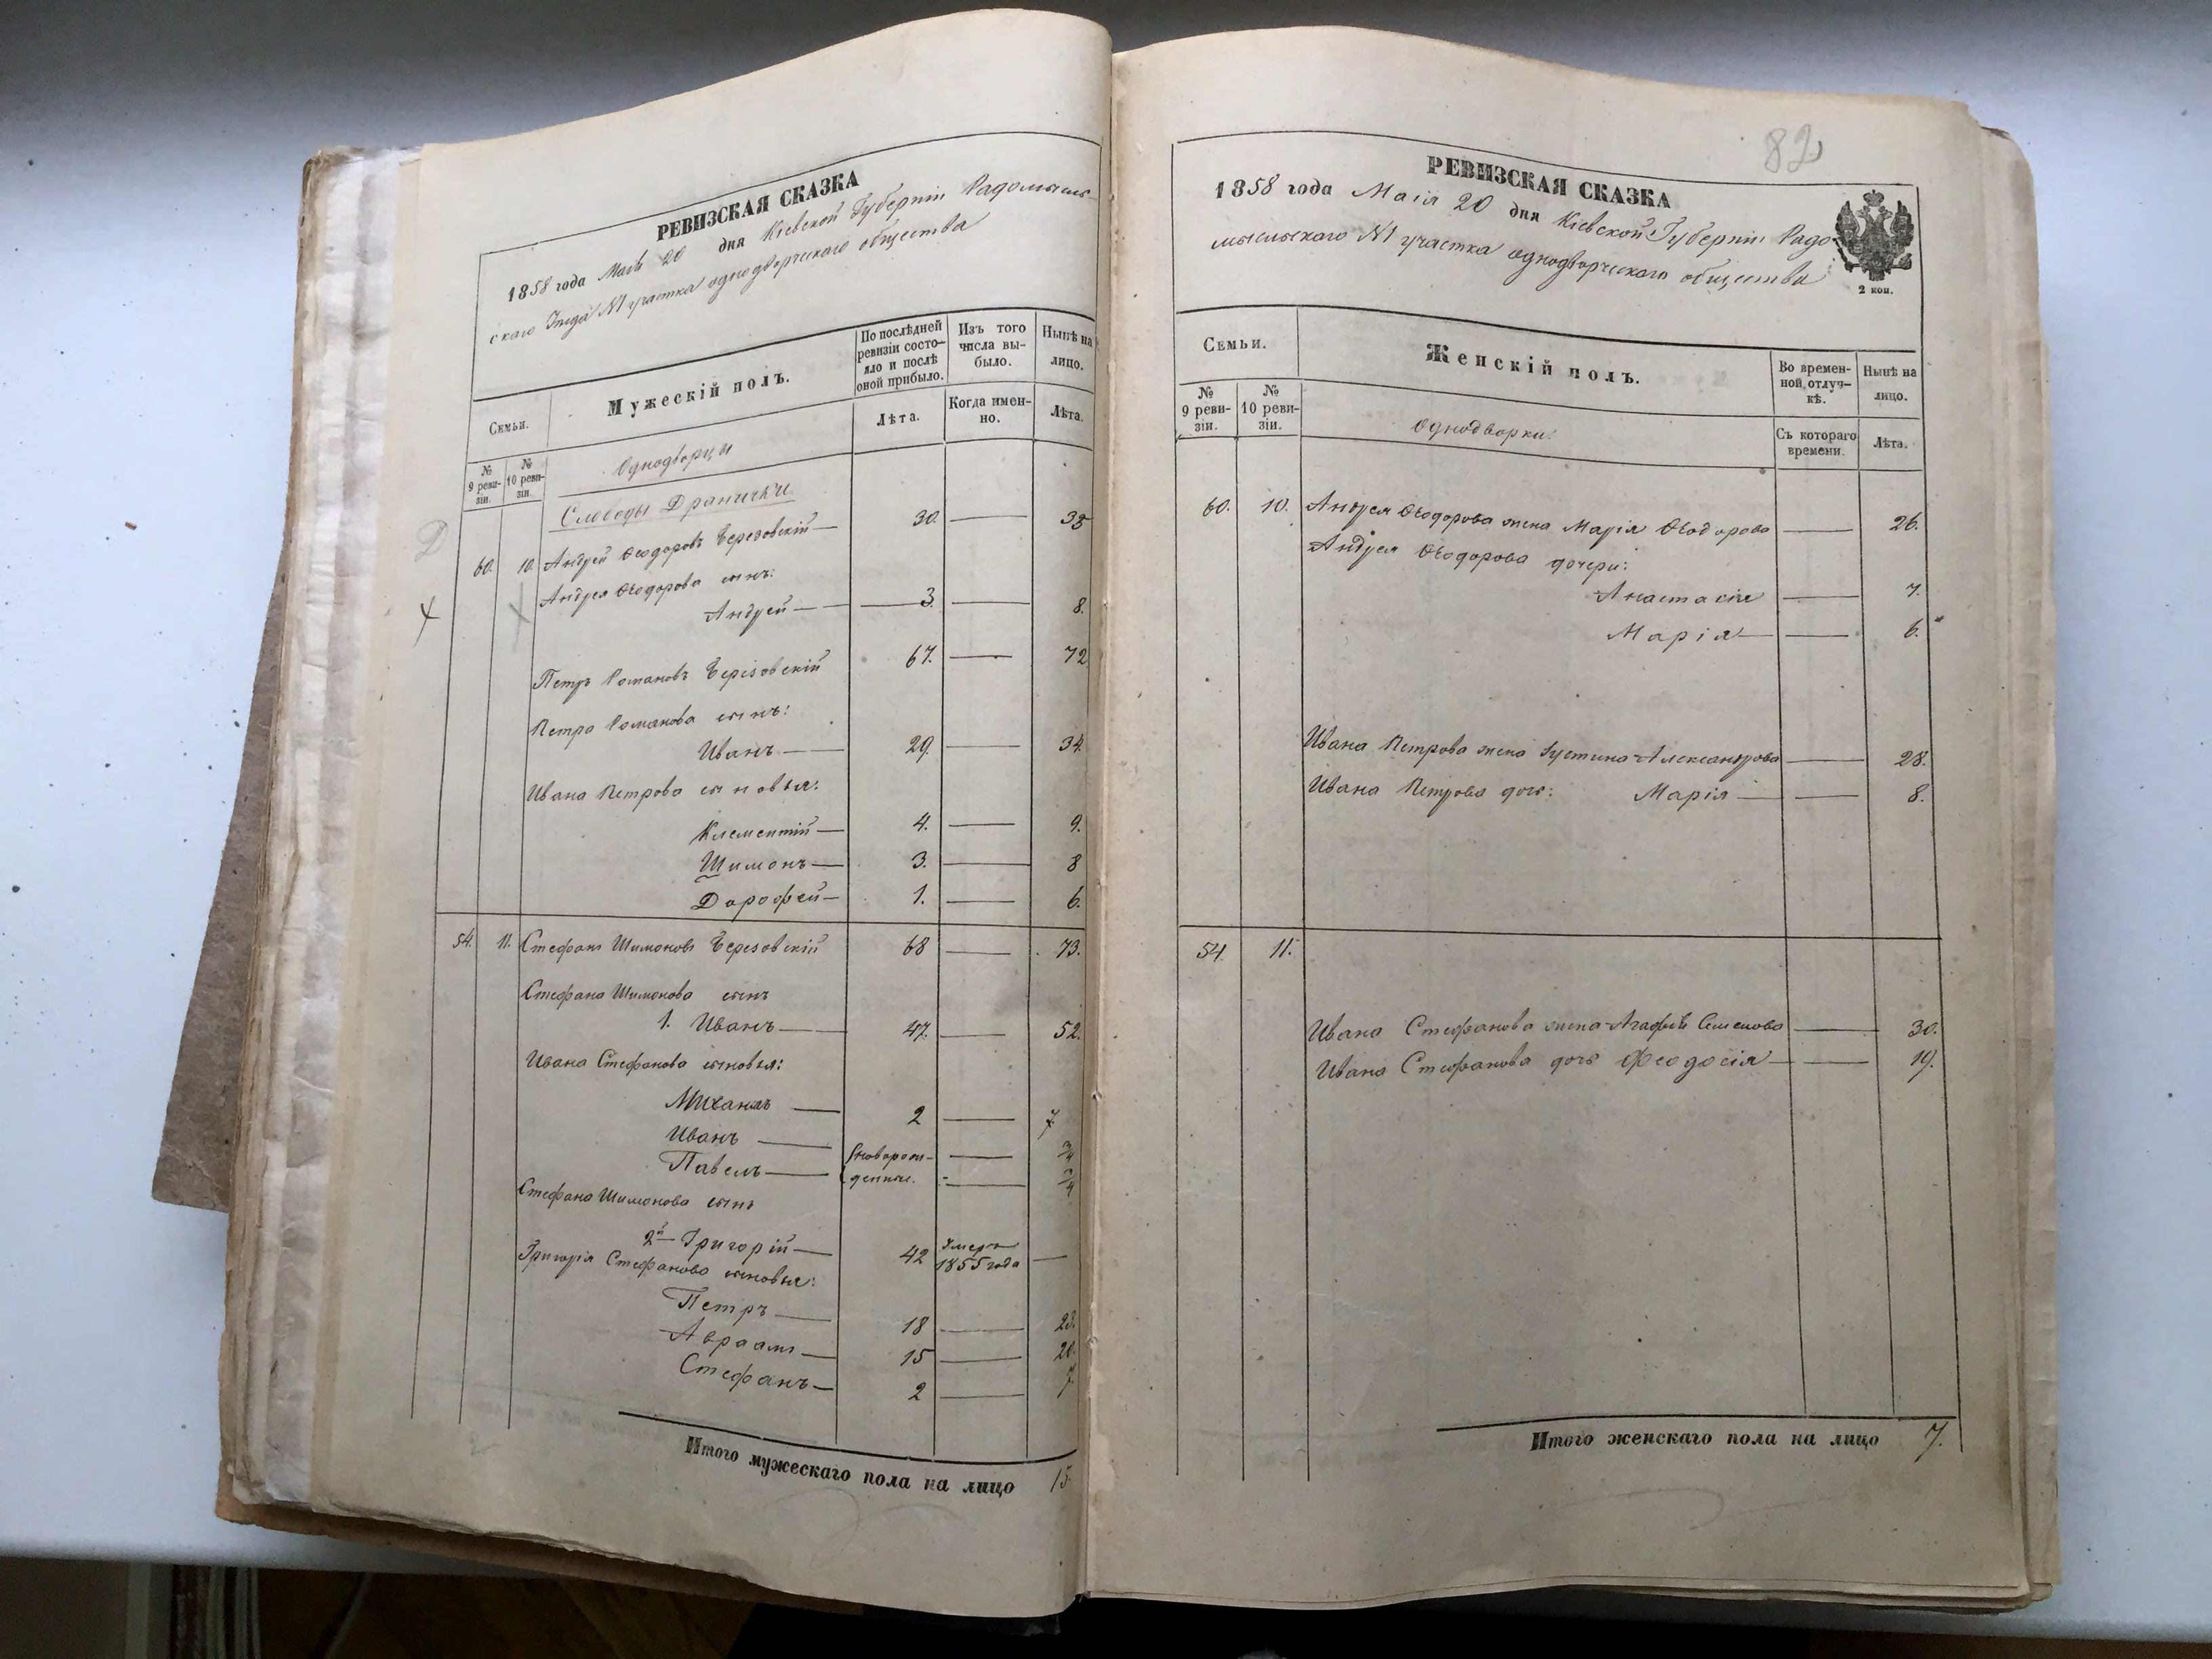 РЕВИЗСКАЯ СКАЗКА
1858 года Маія 20 дня Кіевской Губерніи Радомысль-
скаго Уезда №1 участка однодворческаго общества
Семьи.
Мужескій полъ.
По послѣдней ревизіи состо-
яло и послѣ оной прибыло.
Изъ того числа вы-
было.
Нынѣ на лицо.
№ 9 реви-
зіи.
№ 10 реви-
зіи.
Лѣта.
Когда имен-
но.
Лѣта.
Однодворцы
Слободы Дранички
60. 10. Андрей Ѳеодоровъ Березовскій— 30. — 35
Андрея Ѳеодорова сынъ:
Андрей— 3. — 8.
Петръ Романовъ Березовскій 67. — 72
Петра Романова сынъ:
Иванъ— 29. — 34.
Ивана Петрова сыновья:
Клементій— 4. — 9.
Шимонъ— 3. — 8
Дорофей— 1. — 6.
54. 11. Стефанъ Шимоновъ Березовскій 68 — 73.
Стефана Шимонова сынъ
1. Иванъ— 47. — 52.
Ивана Стефанова сыновья:
Михаилъ — 2 — 7
Иванъ — новорож- — 3/4
Павелъ— денные. — 3/4
Стефана Шимонова сынъ
2й Григорій— 42 Умеръ 1855 года —
Григорія Стефанова сыновья:
Петръ— 18 — 23.
Авраамъ— 15 — 20.
Стефанъ— 2 — 7.
Итого мужескаго пола на лицо 15.
82
РЕВИЗСКАЯ СКАЗКА
1858 года Маія 20 дня Кіевской Губерніи Радо-
мысльскаго №1 участка однодворческаго общества
2 коп.
Семьи.
Женскій полъ.
Во времен-
ной отлуч-
кѣ.
Нынѣ на лицо.
№ 9 реви-
зіи.
№ 10 реви-
зіи.
Однодворки.
Съ котораго времени.
Лѣта.
60. 10. Андрея Ѳеодорова жена Марія Ѳеодорова — 26.
Андрея Ѳеодорова дочери:
Анастасія — 7.
Марія — 6.
Ивана Петрова жена Густина Александрова — 28.
Ивана Петрова дочь: Марія — 8.
54. 11.
Ивана Стефанова жена Агафія Семенова — 30.
Ивана Стефанова дочь Феодосія — 19.
Итого женскаго пола на лицо 7.